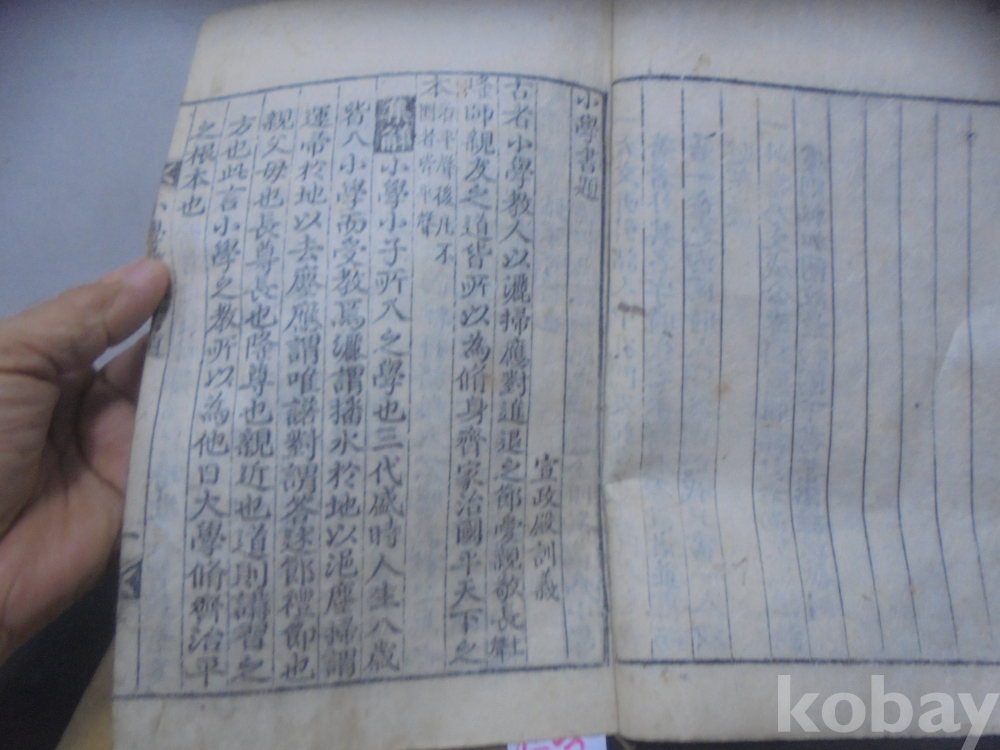 小學書題
宣政殿訓義
古者小學教人以灑掃應對進退之節愛親敬長
隆師親友之道皆所以為脩身齊家治國平天下之
本治平聲後凡不
同者皆平聲
小學小子所入之學也三代盛時人生八歲
皆入小學而受教焉灑謂播水於地以浥塵掃謂
運帚於地以去塵應謂唯諾對謂答述節禮節也
親父母也長尊長也隆尊也親近也道則講習之
方也此言小學之教所以為他日大學脩齊治平
之根本也
kobay